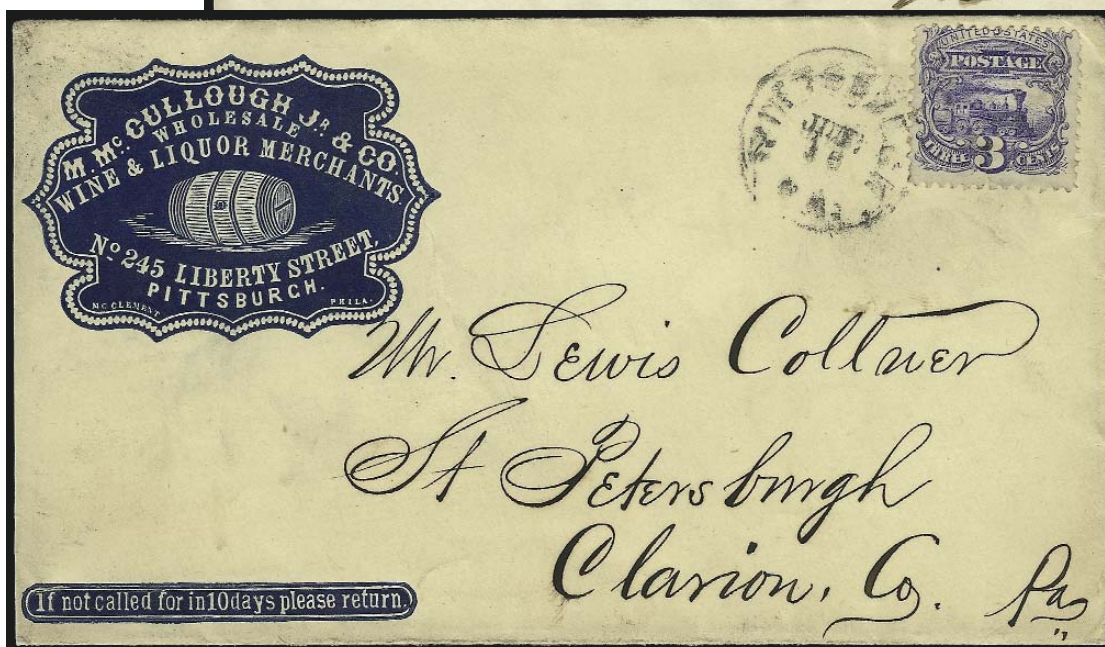 M. Mc. CULLOUGH Jr. & CO.
WHOLESALE
WINE & LIQUOR MERCHANTS
No 245 LIBERTY STREET,
PITTSBURGH.
MC CLEMENT PHILA.
UNITED STATES
POSTAGE
THREE 3 CENTS
Mr. Lewis Collner
St Petersburgh
Clarion, Co. Pa
If not called for in 10 days please return.